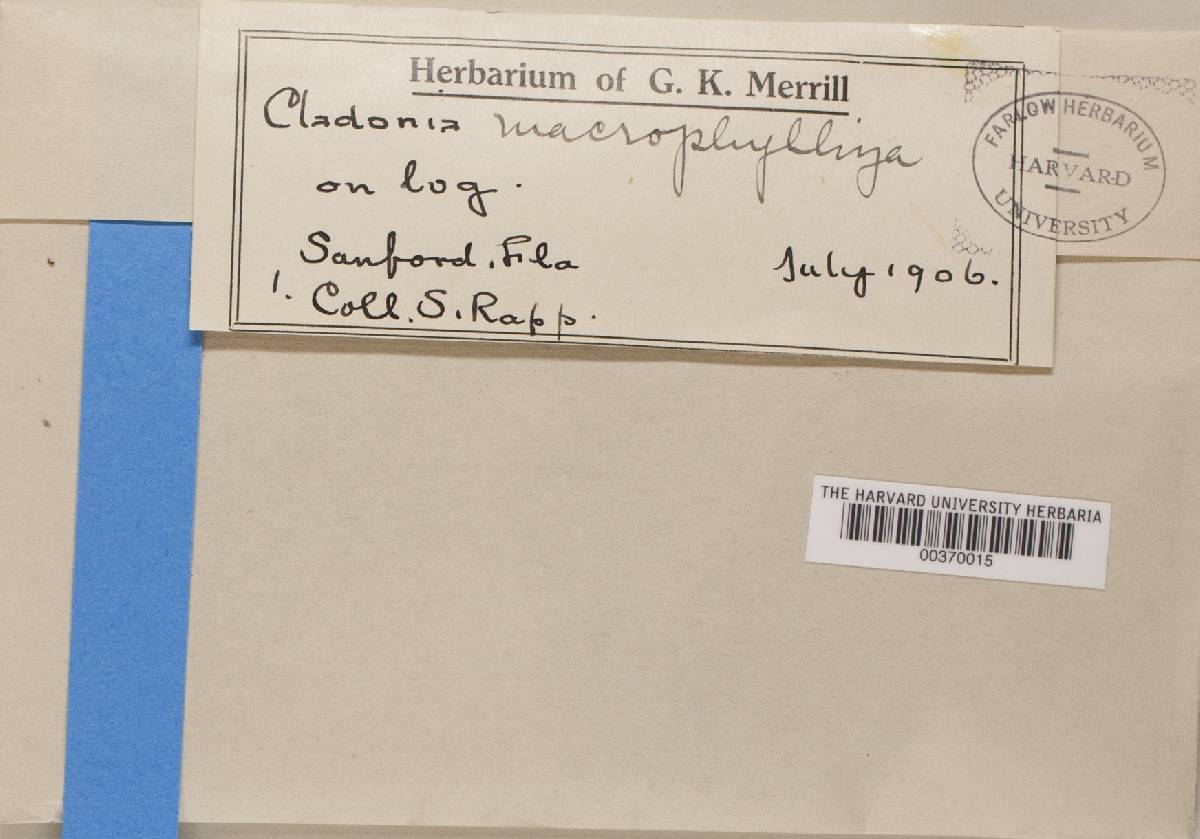 Herbarium of G. K. Merrill
Cladonia macrophylliza
on log.
Sanford. Fla
July 1906.
1. Coll. S. Rapp.
FARLOW HERBARIUM
HARVARD
UNIVERSITY
THE HARVARD UNIVERSITY HERBARIA
00370015